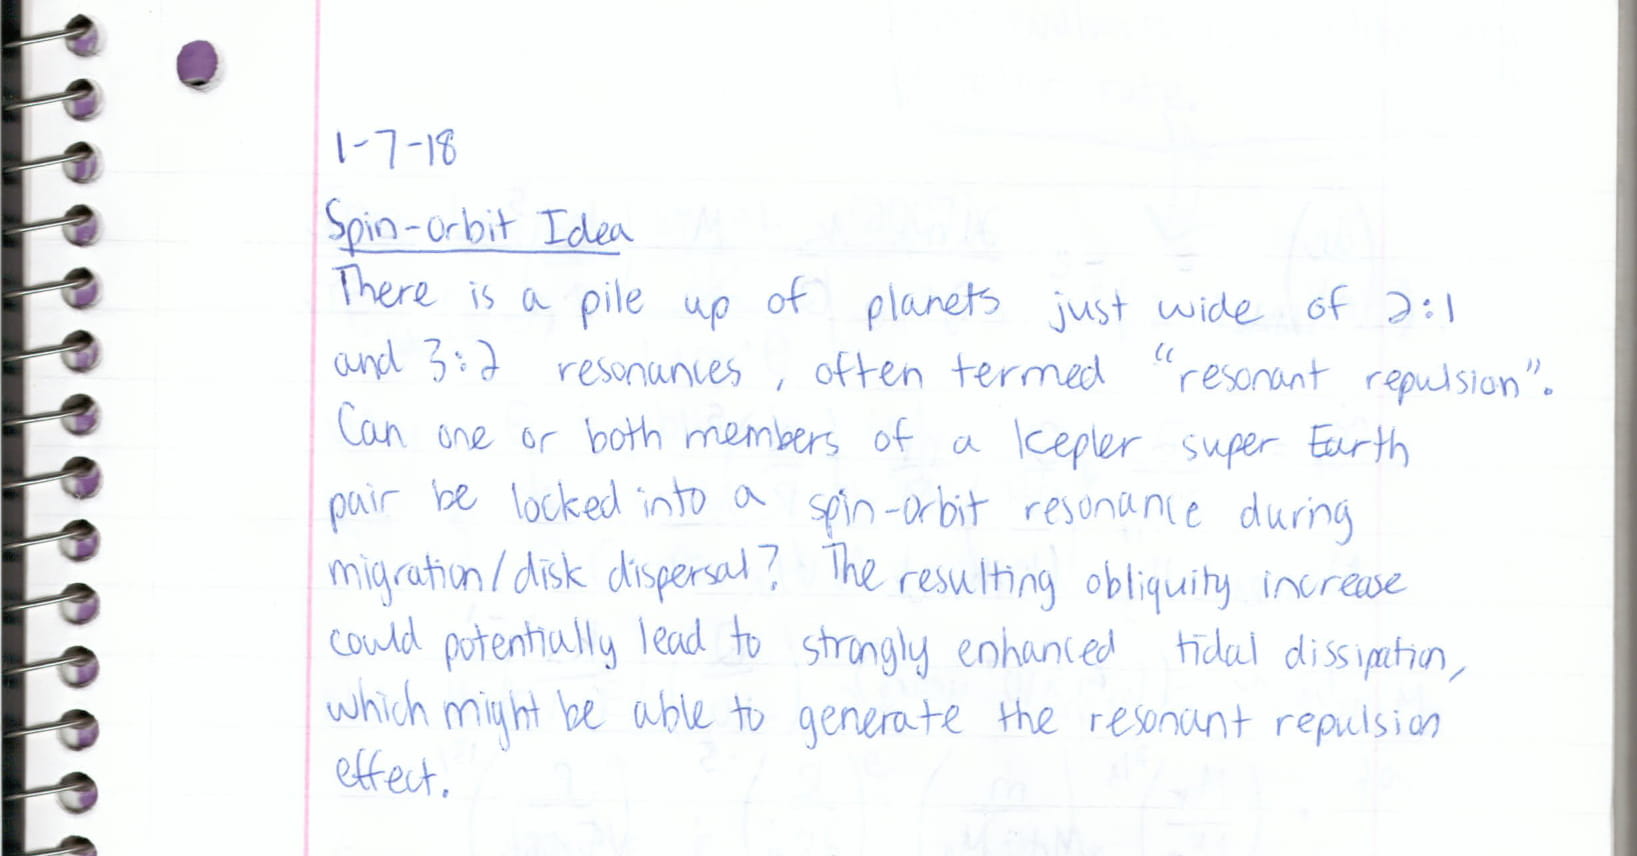 1-7-18
Spin-orbit Idea
There is a pile up of planets just wide of 2:1
and 3:2 resonances, often termed "resonant repulsion".
Can one or both members of a Kepler super Earth
pair be locked into a spin-orbit resonance during
migration/disk dispersal? The resulting obliquity increase
could potentially lead to strongly enhanced tidal dissipation,
which might be able to generate the resonant repulsion
effect.